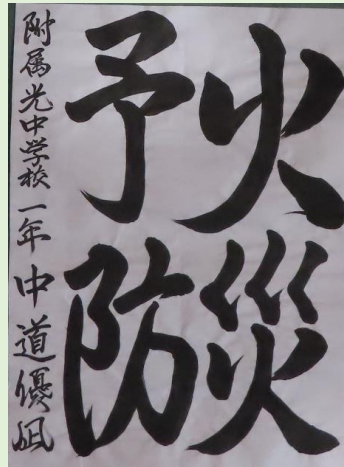 火災
予防
附属光中学校 一年 中道優凪